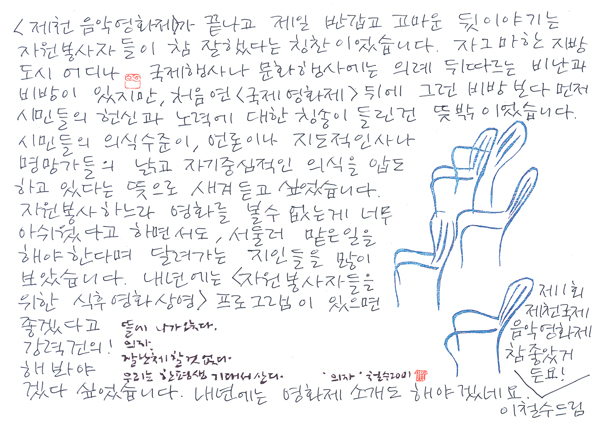 <제천 음악영화제>가 끝나고 제일 반갑고 고마운 뒷이야기는
자원봉사자들이 참 잘했다는 칭찬이었습니다. 자그마한 지방
도시 어디나 국제행사나 문화행사에는 의례 뒤따르는 비난과
비방이 있지만, 처음 연 <국제영화제> 뒤에 그런 비방 보다 먼저
시민들의 헌신과 노력에 대한 칭송이 들린건 뜻밖이었습니다.
시민들의 의식수준이, 언론이나 지도적인사나
명망가들의 낡고 자기중심적인 의식을 압도
하고 있다는 뜻으로 새겨 듣고 싶었습니다.
자원봉사하느라 영화를 볼수 없는게 너무
아쉬웠다고 하면서도, 서둘러 맡은일을
해야한다며 달려가는 지인들을 많이
보았습니다. 내년에는 <자원봉사자들을
위한 식후영화상영> 프로그램이 있으면
좋겠다고
강력건의!
해 봐야
겠다 싶었습니다. 내년에는 영화제 소개도 해야겠네요.
뜰에 나가 앉았다.
의자.
잘난체 할 것 없다.
우리는 한평생 기대서 산다.
'의자' 철수2001
제1회
제천국제
음악영화제
참 좋았거
든요!
이철수드림